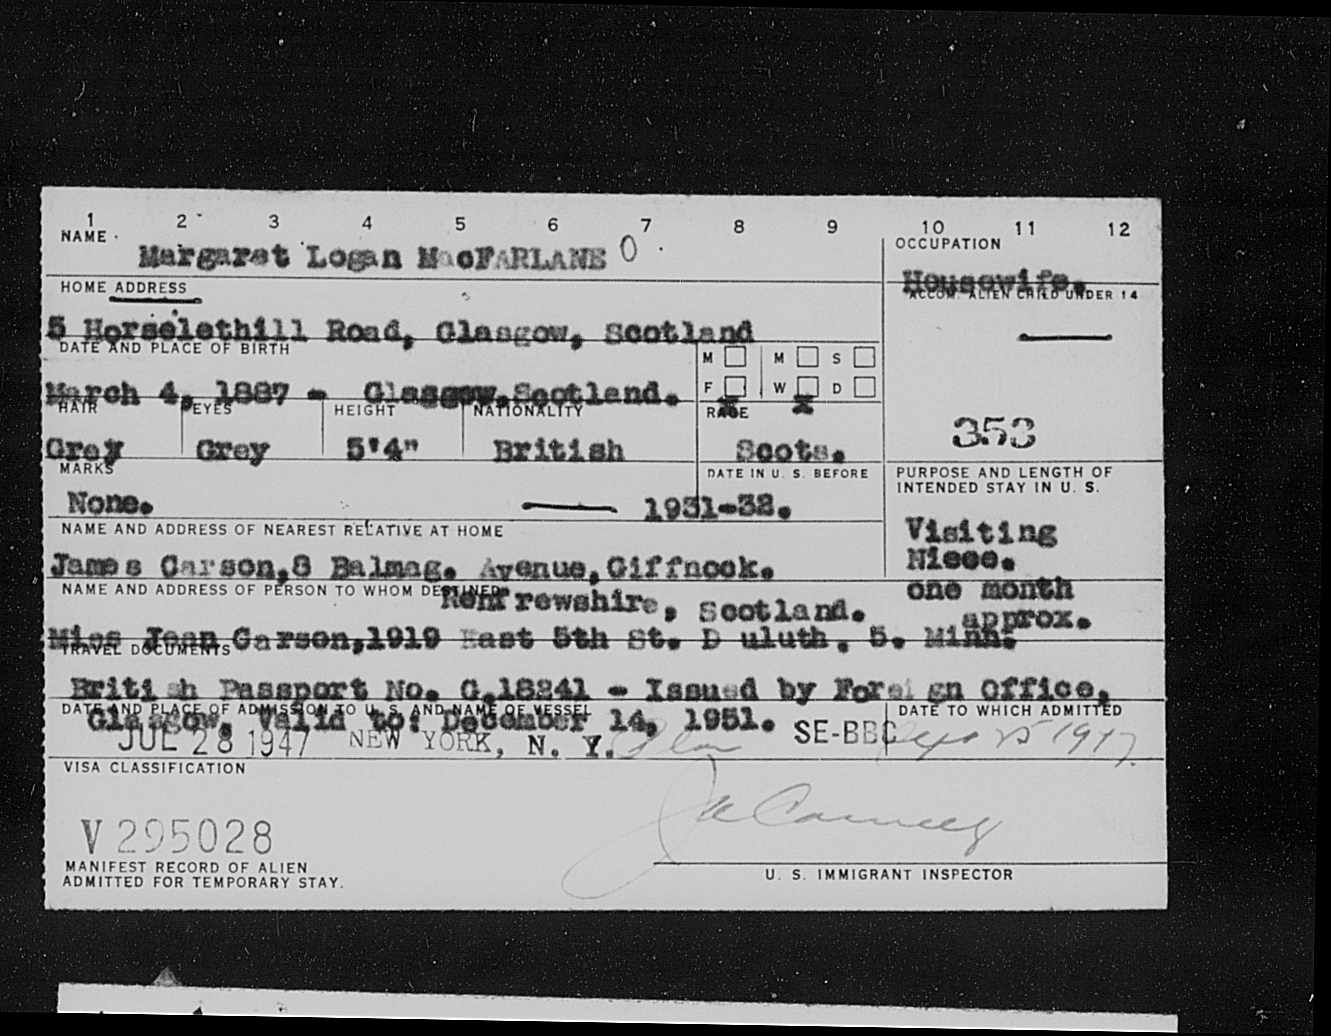 1 2 3 4 5 6 7 8 9 10 11 12
NAME
Margaret Logan MacFARLANE O
OCCUPATION
Housewife.
HOME ADDRESS
5 Horselethill Road, Glasgow, Scotland
ACCOM. ALIEN CHILD UNDER 14
DATE AND PLACE OF BIRTH
March 4, 1887 - Glasgow, Scotland.
M M S
F W D
x x
HAIR EYES HEIGHT NATIONALITY RACE
Grey Grey 5'4" British Scots.
353
MARKS
None.
DATE IN U. S. BEFORE
1931-32.
PURPOSE AND LENGTH OF
INTENDED STAY IN U. S.
Visiting
Niece.
one month
approx.
NAME AND ADDRESS OF NEAREST RELATIVE AT HOME
James Carson,8 Balmag. Avenue,Giffnock.
Renfrewshire, Scotland.
NAME AND ADDRESS OF PERSON TO WHOM DESTINED
Miss Jean Carson,1919 East 5th St. D uluth, 5. Minn.
TRAVEL DOCUMENTS
British Passport No. C.18241 - Issued by Foreign Office,
Glasgow. Valid to: December 14, 1951.
DATE AND PLACE OF ADMISSION TO U. S. AND NAME OF VESSEL
JUL 28 1947 NEW YORK, N. Y. SE-BBC
DATE TO WHICH ADMITTED
25 1947.
VISA CLASSIFICATION
V 295028
MANIFEST RECORD OF ALIEN
ADMITTED FOR TEMPORARY STAY.
U. S. IMMIGRANT INSPECTOR